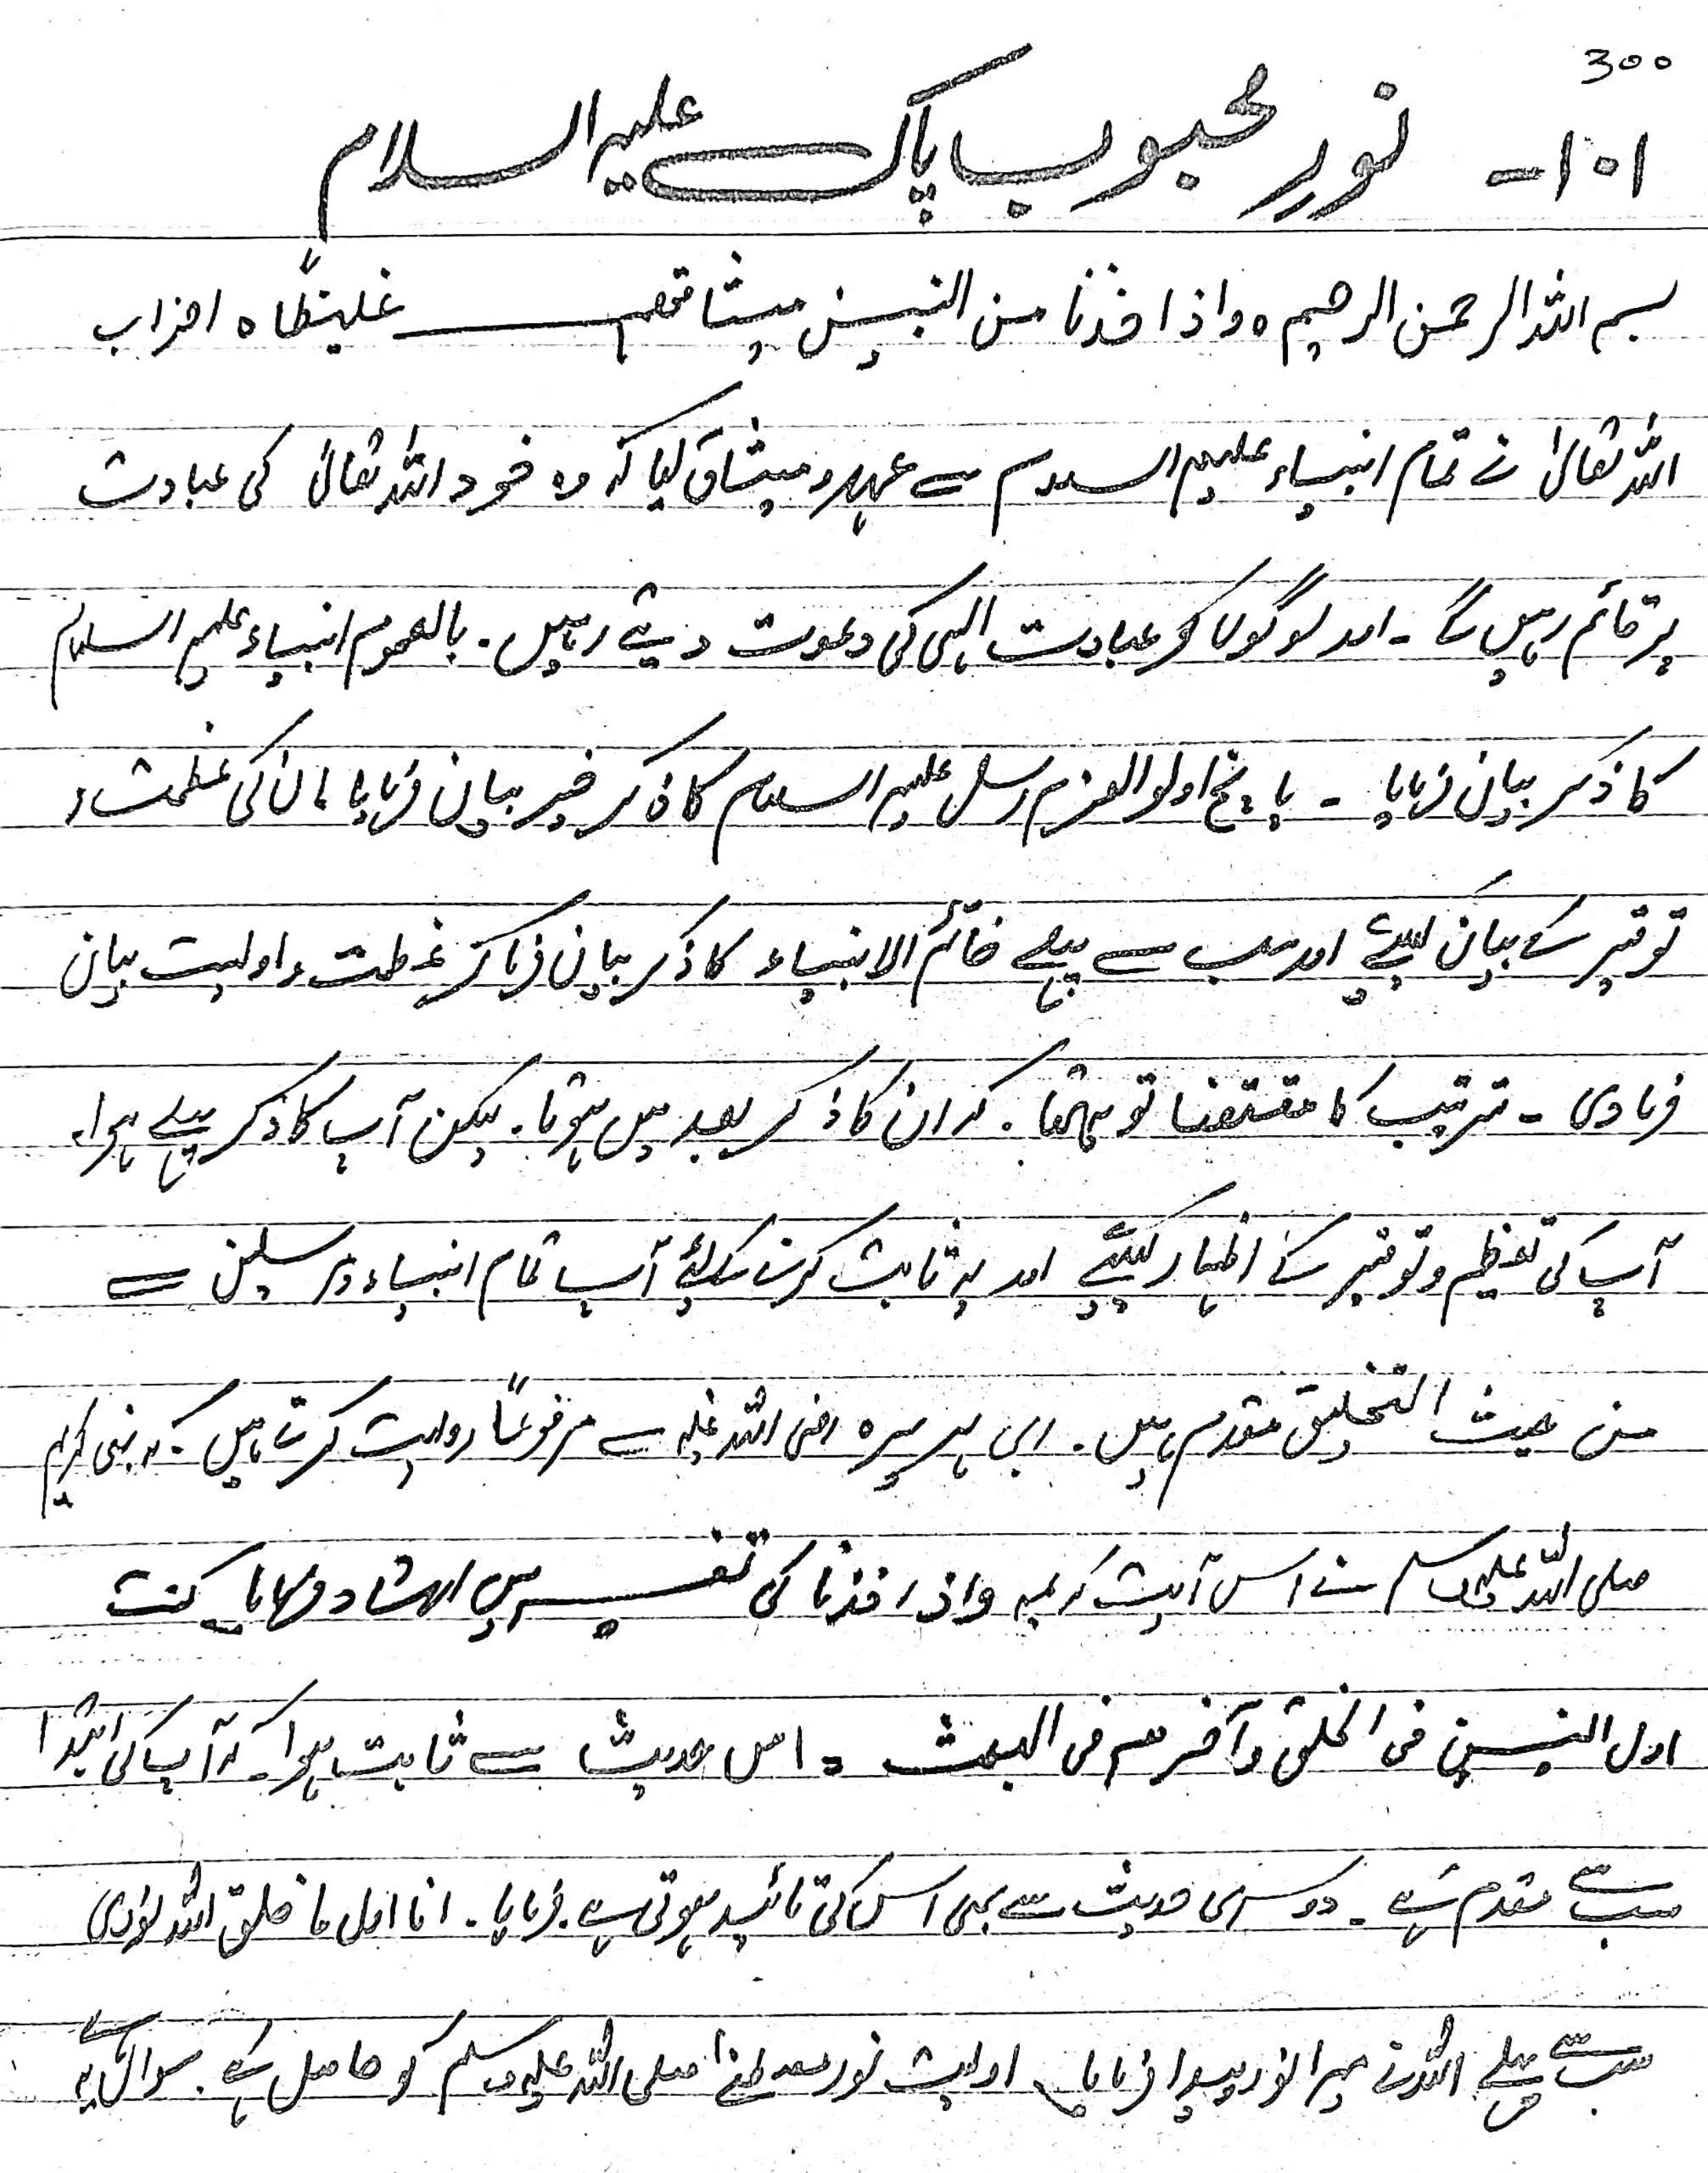 300
۱۰۱- نور محبوب پاک علیہ السلام
بسم اللہ الرحمن الرحیم ہ واذ اخذنا من النبین میثاقھم ــــــ غلیظاً ہ احزاب
اللہ تعالیٰ نے تمام انبیاء علیھم السلام سے عہد و میثاق لیا کہ وہ خود اللہ تعالیٰ کی عبادت
پر قائم رہیں گے - اور لوگوں کو عبادت الٰہی کی دعوت دیتے رہیں - بالعموم انبیاء علیھم السلام
کا ذکر بیان فرمایا - پانچ اولوالعزم رسل علیہم السلام کا ذکر خیر بیان فرمایا ان کی عظمت و
توقیر کے بیان لیئے اور سب سے پہلے خاتم الانبیاء کا ذکر بیان فرما کر عظمت و اولیت بیان
فرما دی - ترتیب کا مقتضا تو یہ تھا . کہ ان کا ذکر بعد میں ہوتا . لیکن آپ کا ذکر پہلے ہوا .
آپ کی تعظیم و توقیر کے اظہار کیلئے اور یہ ثابت کرنے کیلئے آپ تمام انبیاء و مرسلین سے
من حیث التخلیق مقدم ہیں . ابی ہریرہ رضی اللہ عنہ سے مرفوعاً روایت کرتے ہیں . کہ نبی کریم
صلی اللہ علیہ وسلم نے اس آیت کریمہ واذ اخذنا کی تفسیر میں ارشاد فرمایا کنت
اول النبین فی الخلق و آخرھم فی البعث ۔ اس حدیث سے ثابت ہوا کہ آپ کی ابتدا
سب سے مقدم ہے - دوسری حدیث سے بھی اس کی تائید ہوتی ہے . فرمایا . انا اول ما خلق اللہ نوری
سب سے پہلے اللہ نے میرا نور پیدا فرمایا اولیت نور مصطفےٰ صلی اللہ علیہ وسلم کو حاصل ہے . سوال یہ ہے